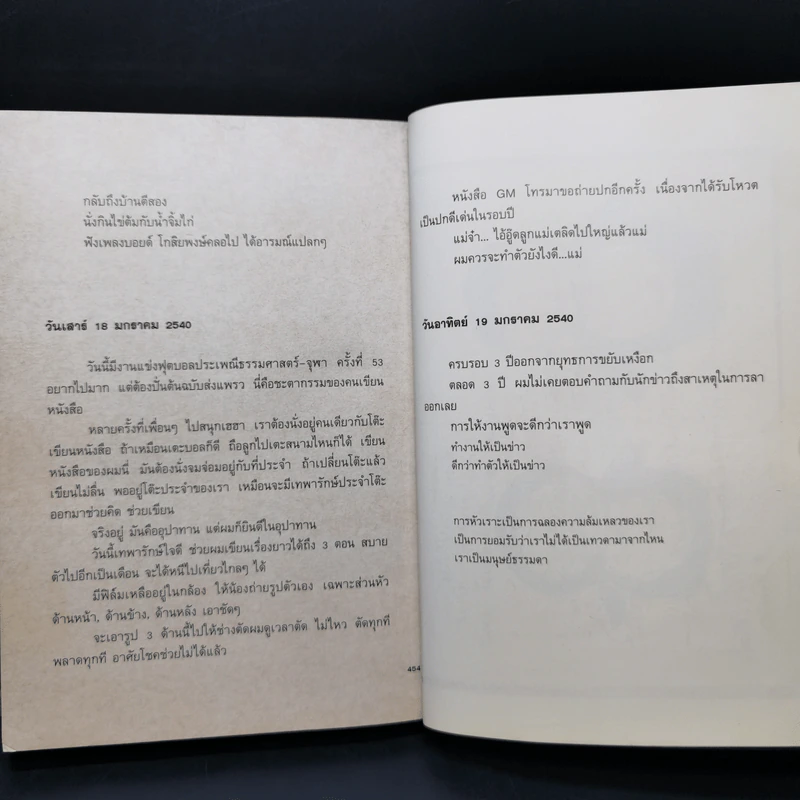 กลับถึงบ้านตีสอง
นั่งกินไข่ต้มกับน้ำจิ้มไก่
ฟังเพลงบอยด์ โกสิยพงษ์คลอไป ได้อารมณ์แปลกๆ
วันเสาร์ 18 มกราคม 2540
วันนี้มีงานแข่งฟุตบอลประเพณีธรรมศาสตร์-จุฬา ครั้งที่ 53
อยากไปมาก แต่ต้องปั่นต้นฉบับส่งแพรว นี่คือชะตากรรมของคนเขียน
หนังสือ
หลายครั้งที่เพื่อนๆ ไปสนุกเฮฮา เราต้องนั่งอยู่คนเดียวกับโต๊ะ
เขียนหนังสือ ถ้าเหมือนเตะบอลก็ดี ถือลูกไปเตะสนามไหนก็ได้ เขียน
หนังสือของผมนี่ มันต้องนั่งจมจ่อมอยู่กับที่ประจำ ถ้าเปลี่ยนโต๊ะแล้ว
เขียนไม่ลื่น พออยู่โต๊ะประจำของเรา เหมือนจะมีเทพารักษ์ประจำโต๊ะ
ออกมาช่วยคิด ช่วยเขียน
จริงอยู่ มันคืออุปาทาน แต่ผมก็ยินดีในอุปาทาน
วันนี้เทพารักษ์ใจดี ช่วยผมเขียนเรื่องยาวได้ถึง 3 ตอน สบาย
ตัวไปอีกเป็นเดือน จะได้หนีไปเที่ยวไกลๆ ได้
มีฟิล์มเหลืออยู่ในกล้อง ให้น้องถ่ายรูปตัวเอง เฉพาะส่วนหัว
ด้านหน้า, ด้านข้าง, ด้านหลัง เอาชัดๆ
จะเอารูป 3 ด้านนี้ไปให้ช่างตัดผมดูเวลาตัด ไม่ไหว ตัดทุกที
พลาดทุกที อาศัยโชคช่วยไม่ได้แล้ว
404
หนังสือ GM โทรมาขอถ่ายปกอีกครั้ง เนื่องจากได้รับโหวต
เป็นปกดีเด่นในรอบปี
แม่จ๋า... ไอ้อู๊ตลูกแม่เตลิดไปใหญ่แล้วแม่
ผมควรจะทำตัวยังไงดี...แม่
วันอาทิตย์ 19 มกราคม 2540
ครบรอบ 3 ปีออกจากยุทธการขยับเหงือก
ตลอด 3 ปี ผมไม่เคยตอบคำถามกับนักข่าวถึงสาเหตุในการลา
ออกเลย
การให้งานพูดจะดีกว่าเราพูด
ทำงานให้เป็นข่าว
ดีกว่าทำตัวให้เป็นข่าว
การหัวเราะเป็นการฉลองความล้มเหลวของเรา
เป็นการยอมรับว่าเราไม่ได้เป็นเทวดามาจากไหน
เราเป็นมนุษย์ธรรมดา